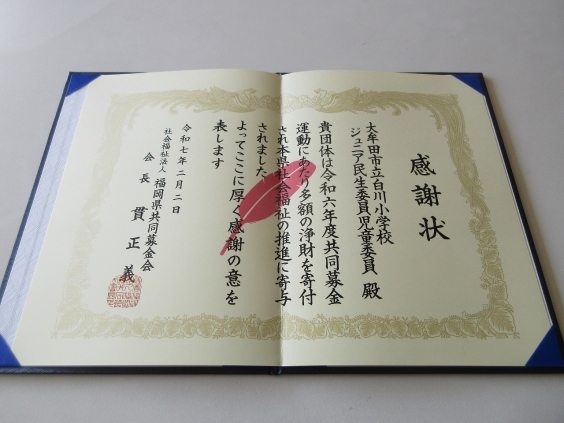 感謝状
大牟田市立白川小学校
ジュニア民生委員児童委員 殿
貴団体は令和六年度共同募金
運動にあたり多額の浄財を寄付
され本県社会福祉の推進に寄与
されました
よってここに厚く感謝の意を
表します
令和七年二月二日
社会福祉法人 福岡県共同募金会
会長 貫正義